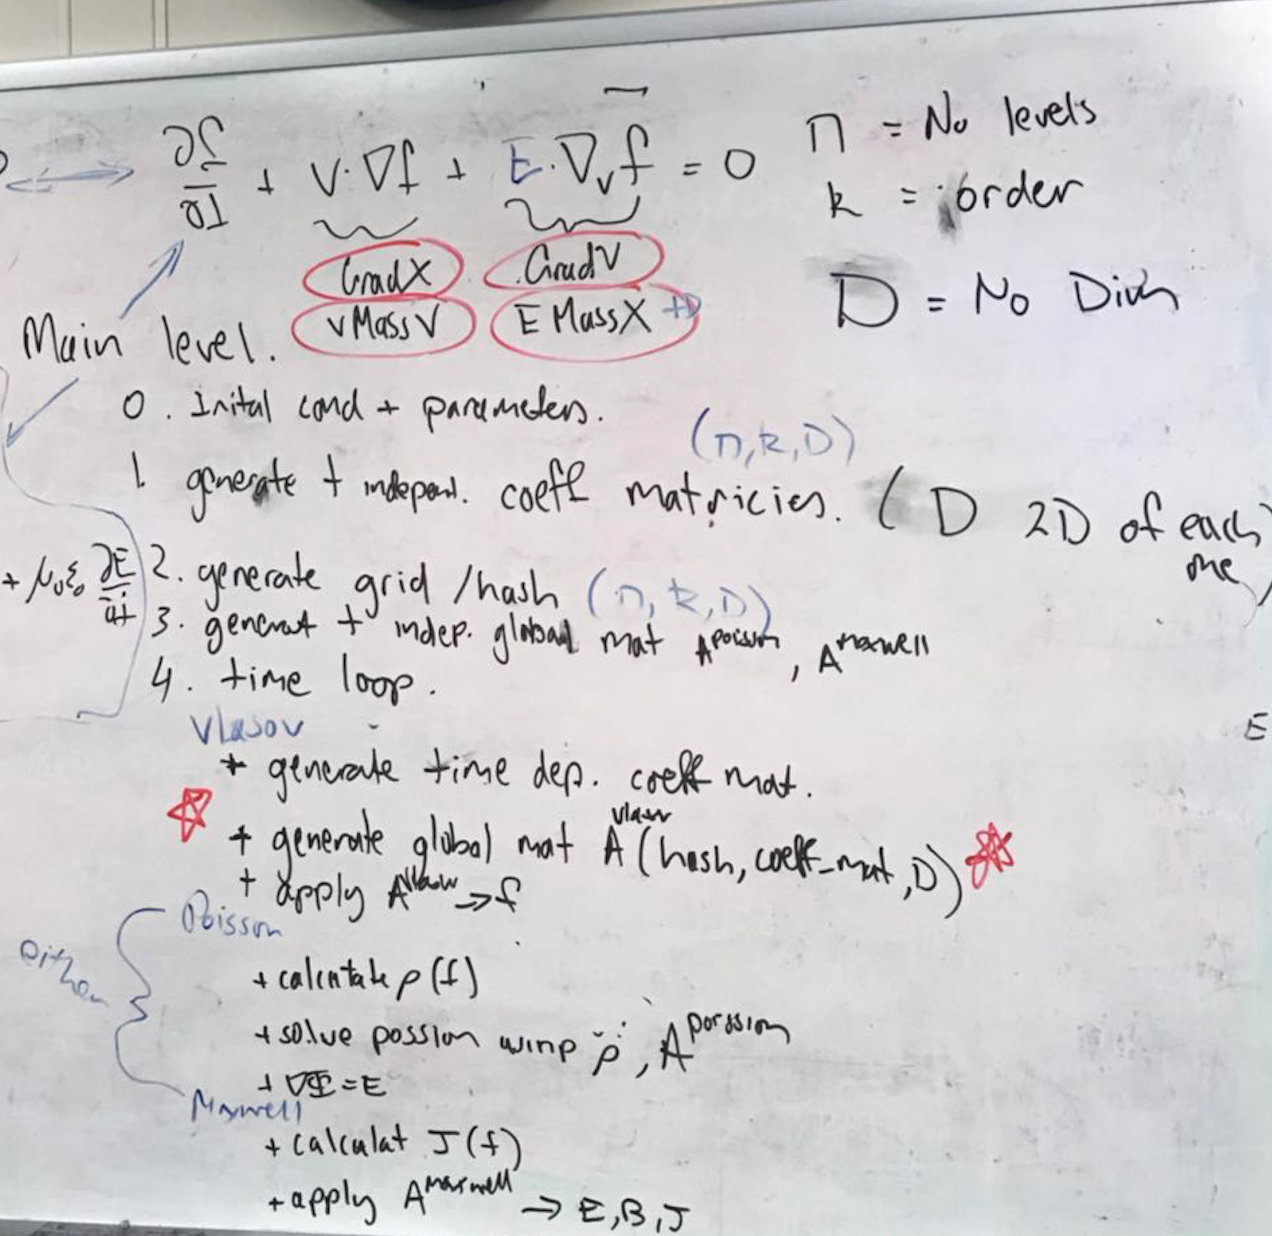 ∂f/∂t + v·∇f + E·∇ᵥf = 0
n = No levels
k = order
D = No Dim
GradX GradV
vMassV EMassX +D
Main level.
0. Inital cond + parameters.
(n,k,D)
1. generate t indepent. coeff matricies. (D 2D of each one)
+ μ₀ε₀ ∂E/∂t
2. generate grid/hash (n,k,D)
3. generat t indep. global mat A^poisson, A^maxwell
4. time loop.
Vlasov
E
+ generate time dep. coeff mat.
+ generate global mat A^vlasov (hash, coeff_mat, D)
+ apply A^vlasov → f
either
Poisson
+ calcutate ρ(f)
+ solve possion ρ, A^possion
+ ∇Φ = E
Maxwell
+ calculat J(f)
+ apply A^maxwell → E,B,J